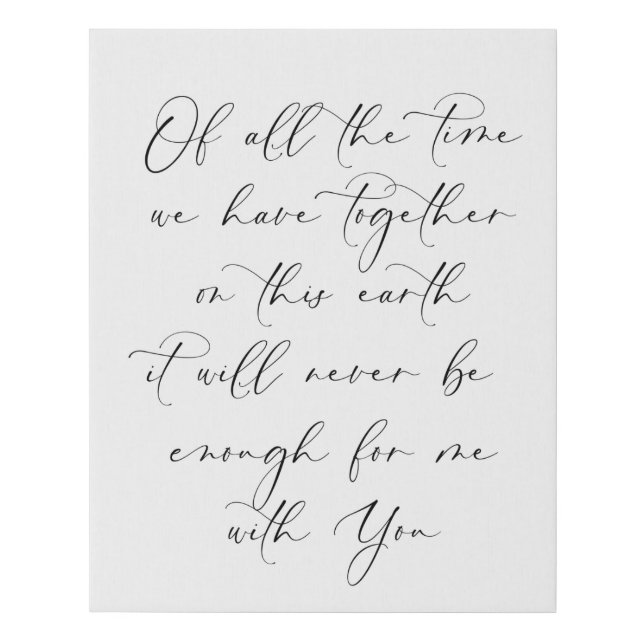 Of all the time
we have together
on this earth
it will never be
enough for me
with You